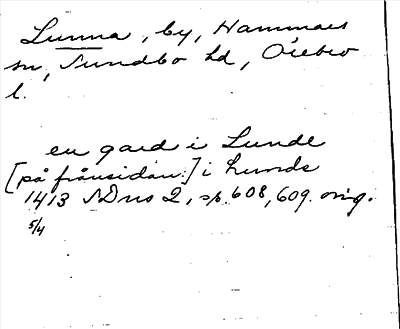 Lunna, by, Hammars
sn, Sundbo hd, Örebro
l.
en gard i Lunde
[på frånsidan:] i Lunds
1413 SDns 2, s. 608, 609. orig.
5/4